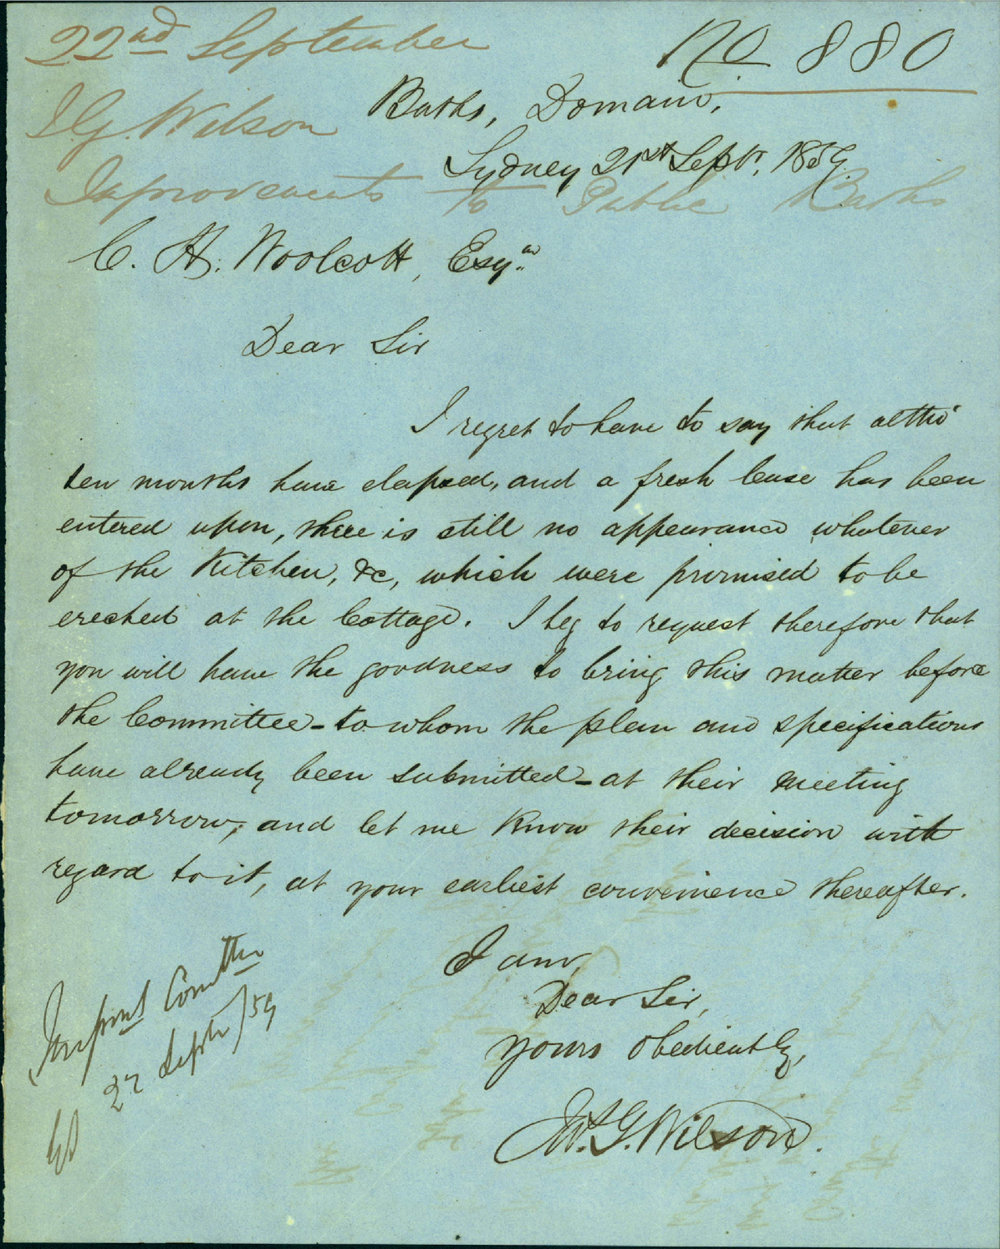 22nd September
No 880
J. G. Wilson
Baths, Domain,
Sydney 21st Septr. 1859.
Improvements to Public Baths
C. H. Woolcott, Esqre
Dear Sir
I regret to have to say that altho'
ten months have elapsed, and a fresh lease has been
entered upon, there is still no appearance whatever
of the Kitchen, &c, which were promised to be
erected at the Cottage. I beg to request therefore that
you will have the goodness to bring this matter before
the Committee - to whom the plan and specifications
have already been submitted - at their meeting
tomorrow, and let me know their decision with
regard to it, at your earliest convenience thereafter.
I am,
Dear Sir,
Yours obediently,
G. Wilson.
Improvt Comttee
Septr /59